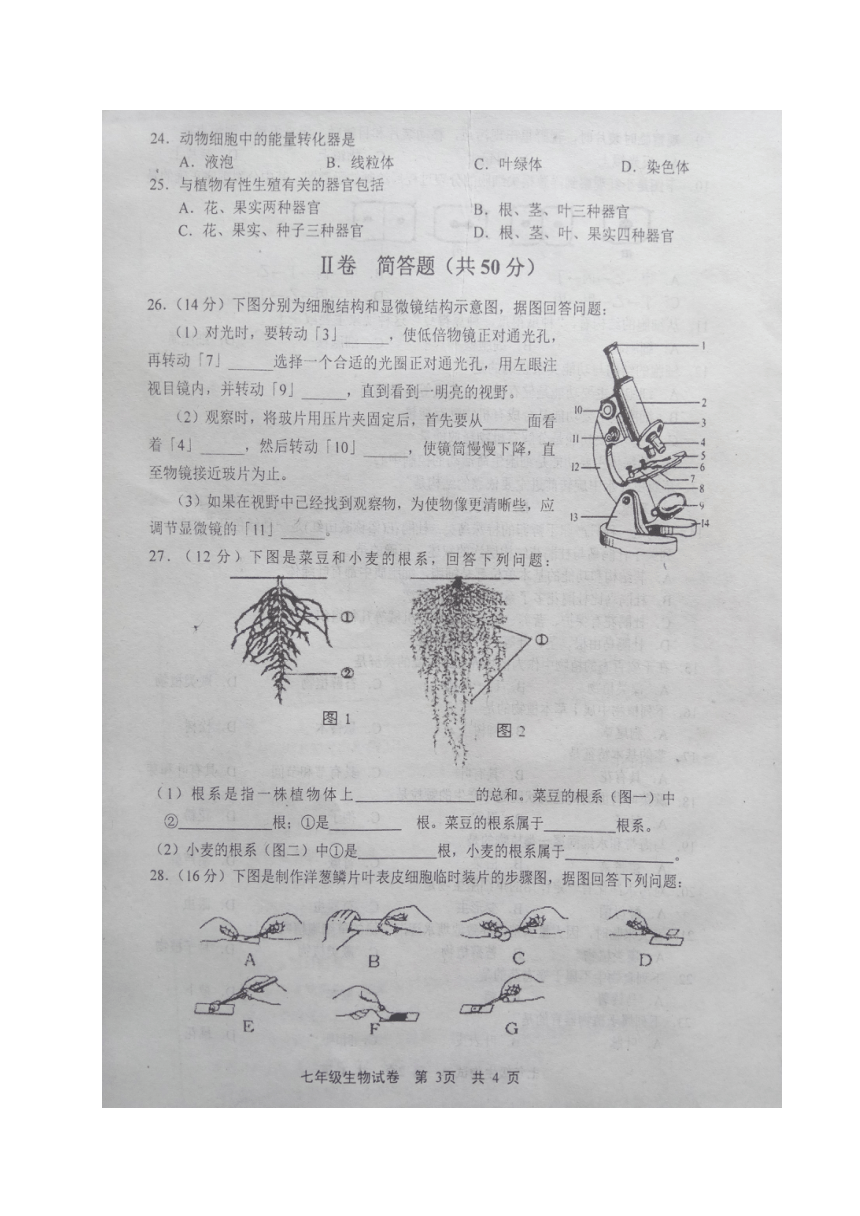 24．动物细胞中的能量转化器是
A．液泡 B．线粒体 C．叶绿体 D．染色体
25．与植物有性生殖有关的器官包括
A．花、果实两种器官 B．根、茎、叶三种器官
C．花、果实、种子三种器官 D．根、茎、叶、果实四种器官
Ⅱ卷 简答题（共 50 分）
26．（14 分）下图分别为细胞结构和显微镜结构示意图，据图回答问题：
（1）对光时，要转动「3」______，使低倍物镜正对通光孔，
再转动「7」______选择一个合适的光圈正对通光孔，用左眼注
视目镜内，并转动「9」______，直到看到一明亮的视野。
（2）观察时，将玻片用压片夹固定后，首先要从______面看
着「4」______，然后转动「10」______，使镜筒慢慢下降，直
至物镜接近玻片为止。
（3）如果在视野中已经找到观察物，为使物像更清晰些，应
调节显微镜的「11」______。
1
2
3
4
5
6
7
8
9
10
11
12
13
14
27．（12 分）下图是菜豆和小麦的根系，回答下列问题：
①
②
图 1
①
图 2
（1）根系是指一株植物体上______________的总和。菜豆的根系（图一）中
②____________根；①是_________ 根。菜豆的根系属于_________根系。
（2）小麦的根系（图二）中①是__________根，小麦的根系属于______________。
28．（16 分）下图是制作洋葱鳞片叶表皮细胞临时装片的步骤图，据图回答下列问题：
A B C D
E F G
七年级生物试卷 第 3页 共 4 页